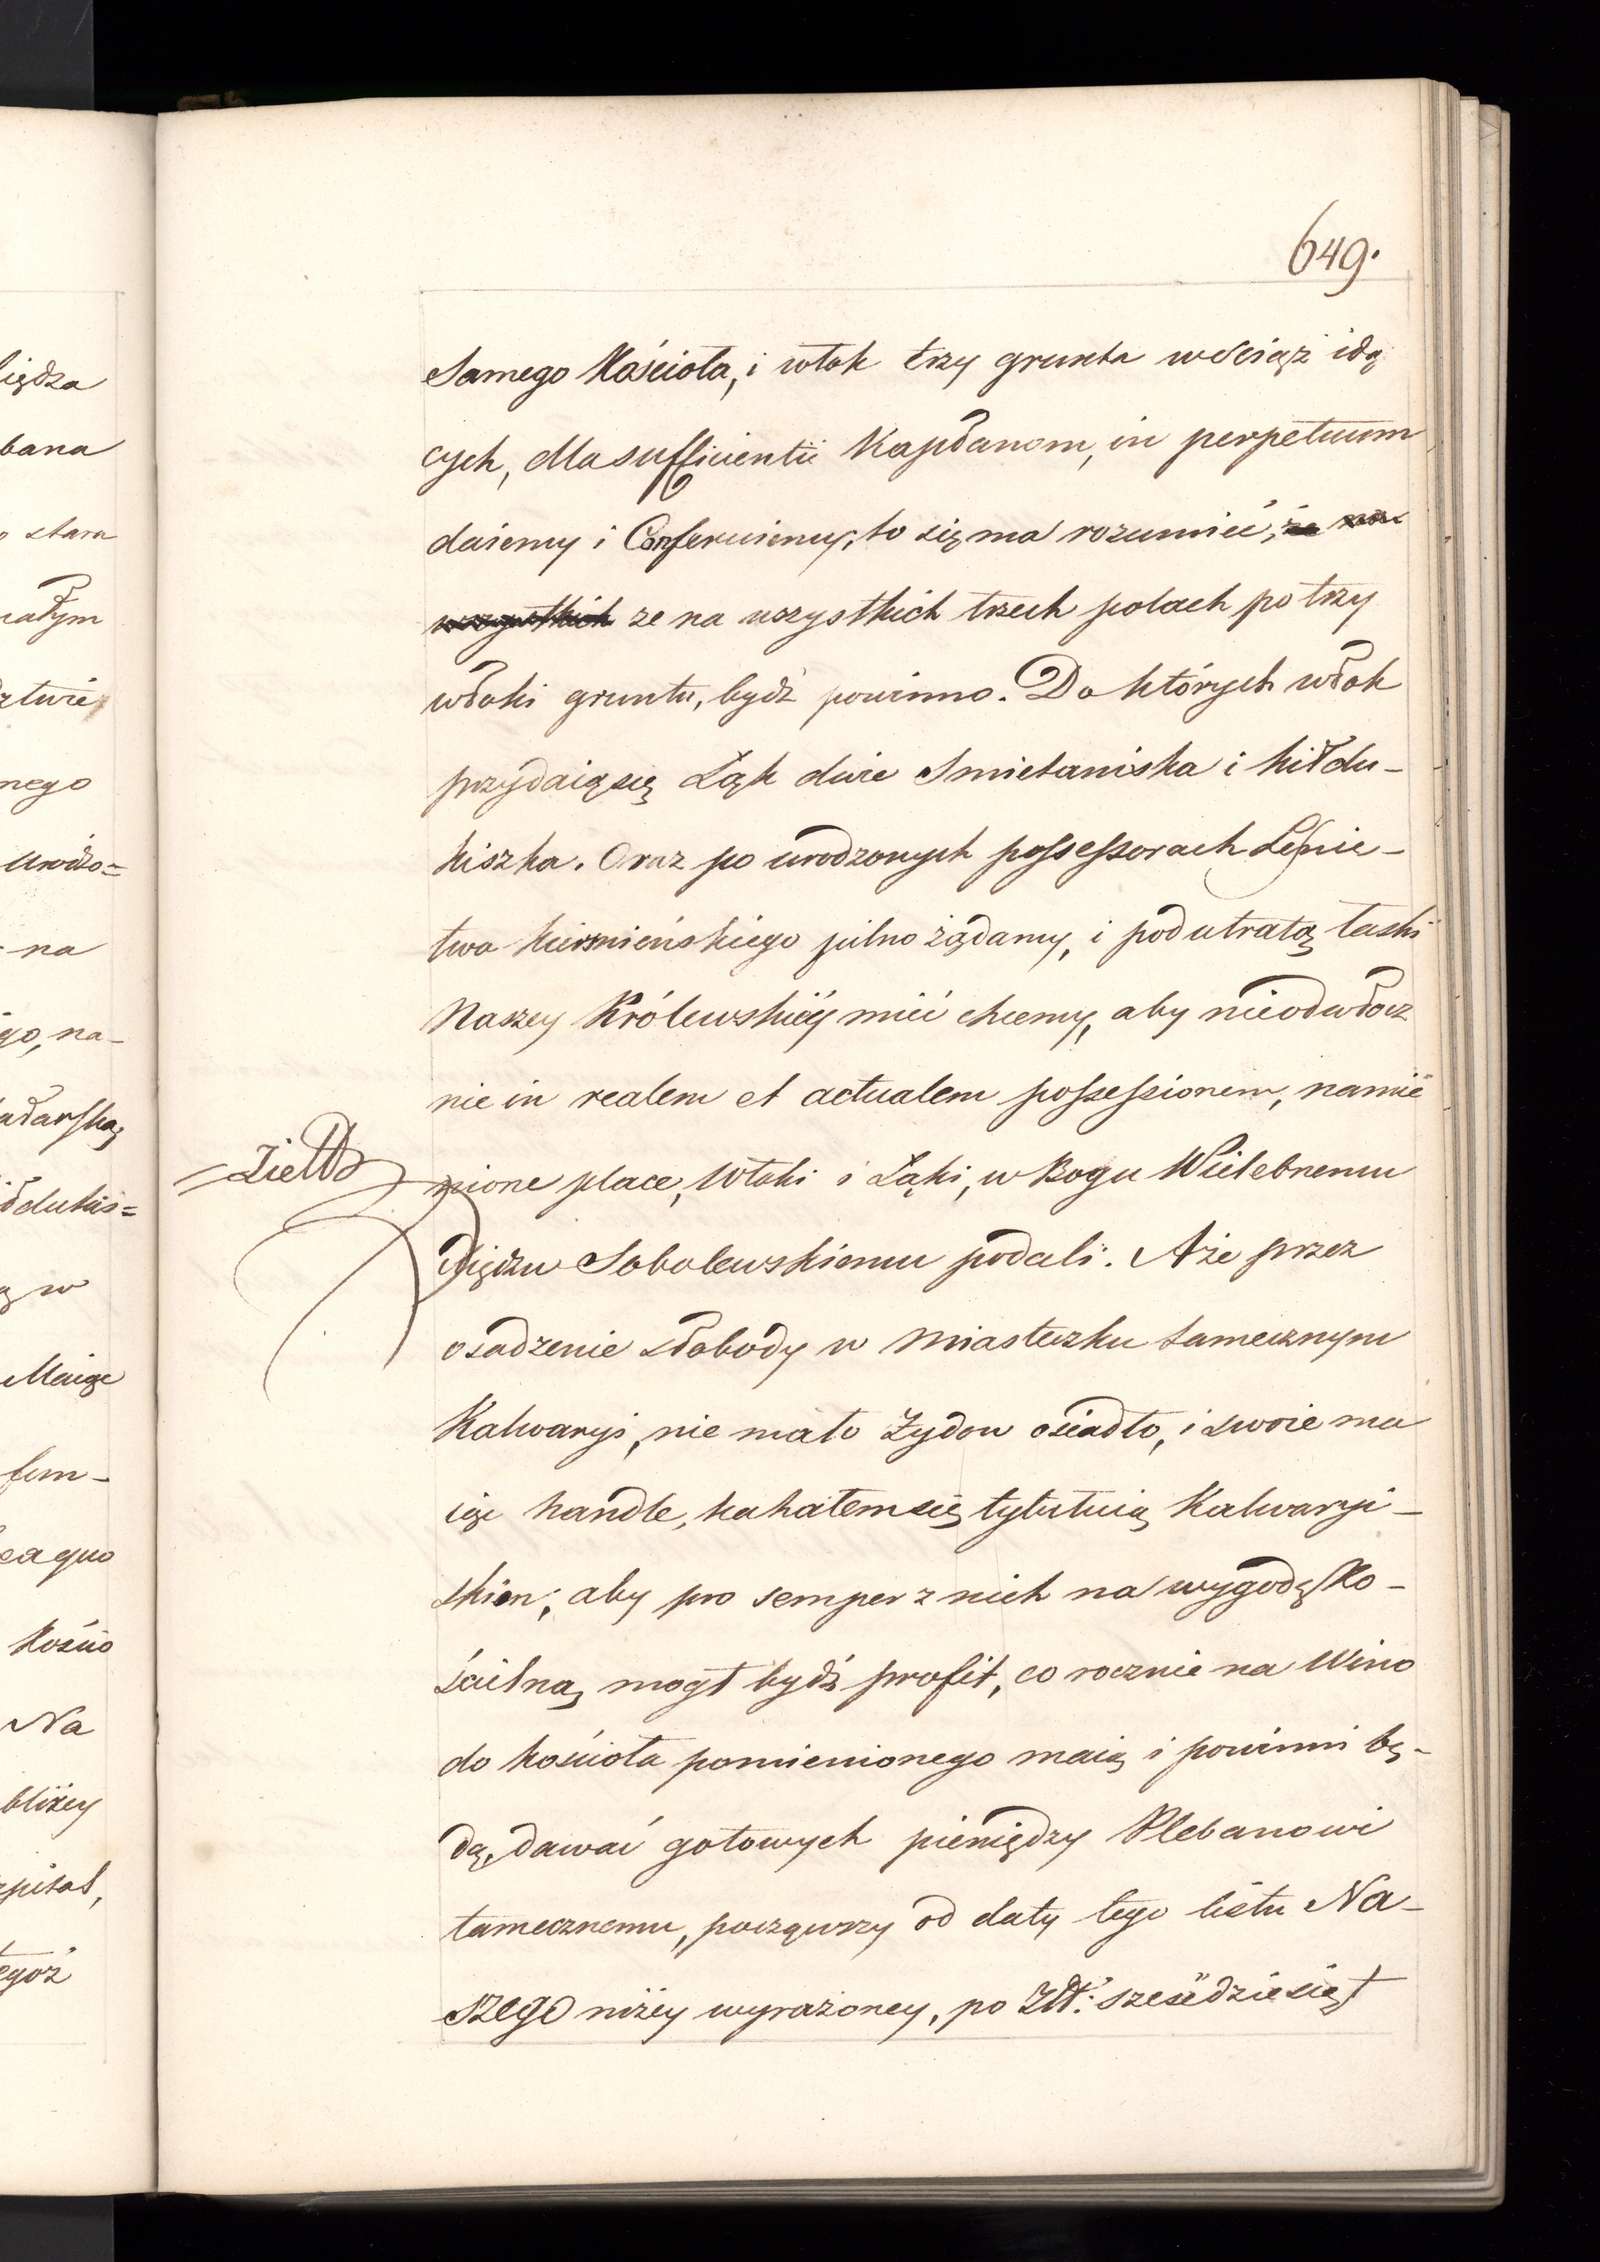 649.
Samego Kościoła, i włok trzy gruntu wściąż idą
cych, dla sufficientii Kapłanom, in perpetuum
daiemy i Conferuiemy, to się ma rozumieć, że na
wszystkich ze na wszystkich trzech polach po trzy
włoki gruntu, bydź powinno. Do których włok
przydaią się Łąk dwie Smietaniska i kiłdu-
kiszka. Oraz po urodzonych possessorach Leśnic-
twa pilno żądamy, i pod utratą łaski
Naszey Królewskiéy mieć chcemy, aby nieodwłocz
nie in realem et actualem possessionem, namie
nione place, Włoki i Łąki, w Bogu Wielebnemu
Xiędzu Sobolewskiemu podali. A że przez
osadzenie słobody w Miasteczku tamecznym
Kalwaryi, nie mało Żydow osiadło, i swoie ma
iąc handle, kahałem się tytułuią Kalwaryi-
skim; aby pro semper z nich na wygodę Ko-
ścielną mogł bydź profit, co rocznie na Wino
do kościoła pomienionego maią i powinni bę-
dą, dawać gotowych pieniędzy Plebanowi
tamecznemu, począwszy od daty tego listu Na-
szego niżéy wyrażoney, po Złł: sześćdziesiąt
iędza
bana
stara
nego
na
go, na-
w
Maiąc
fum-
ea quo
kościo
Na
bliżey
zpital,
egoż